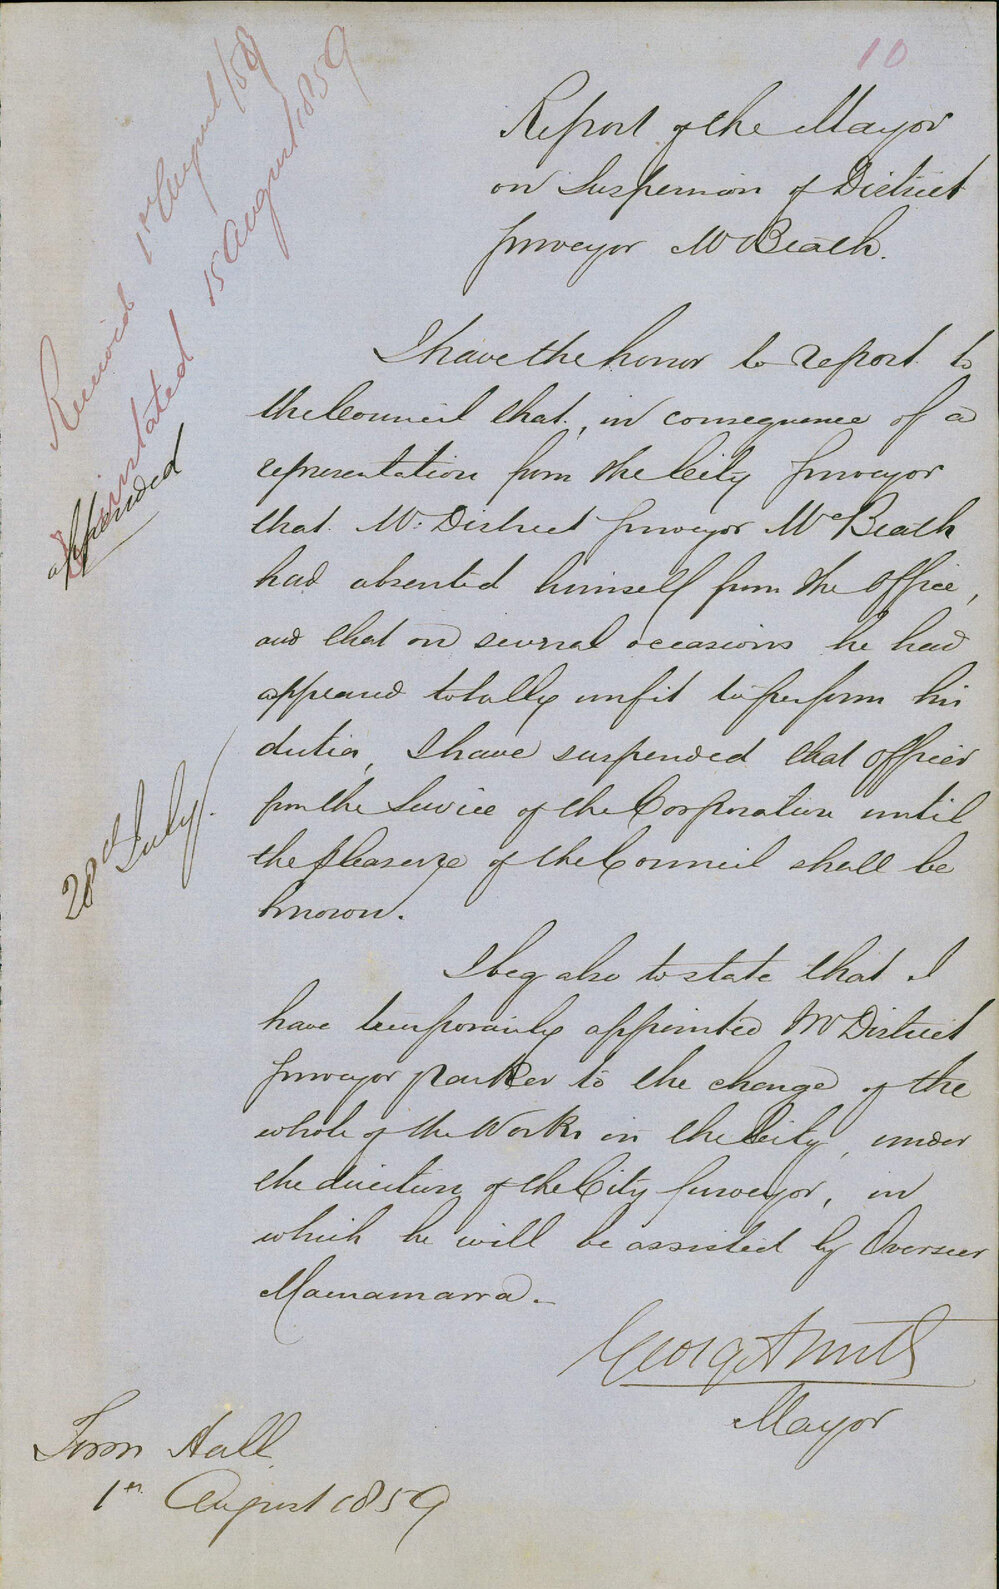 10
Report of the Mayor
on Suspension of District
Surveyor McBeath.
Received 1st August/59
Reinstated 15 August 1859
appended
I have the honor to report to
the Council that, in consequence of a
representation from the City Surveyor
that Mr. District Surveyor McBeath
had absented himself from the Office,
and that on several occasions he had
appeared totally unfit to perform his
duties, I have suspended that Officer
from the Service of the Corporation until
the pleasure of the Council shall be
known.
28th July/.
I beg also to state that I
have temporarily appointed Mr District
Surveyor Parker to the charge of the
whole of the Works in the City, under
the direction of the City Surveyor, in
which he will be assisted by Overseer
Macnamarra.
George A Smith
Mayor
Town Hall
1st August 1859